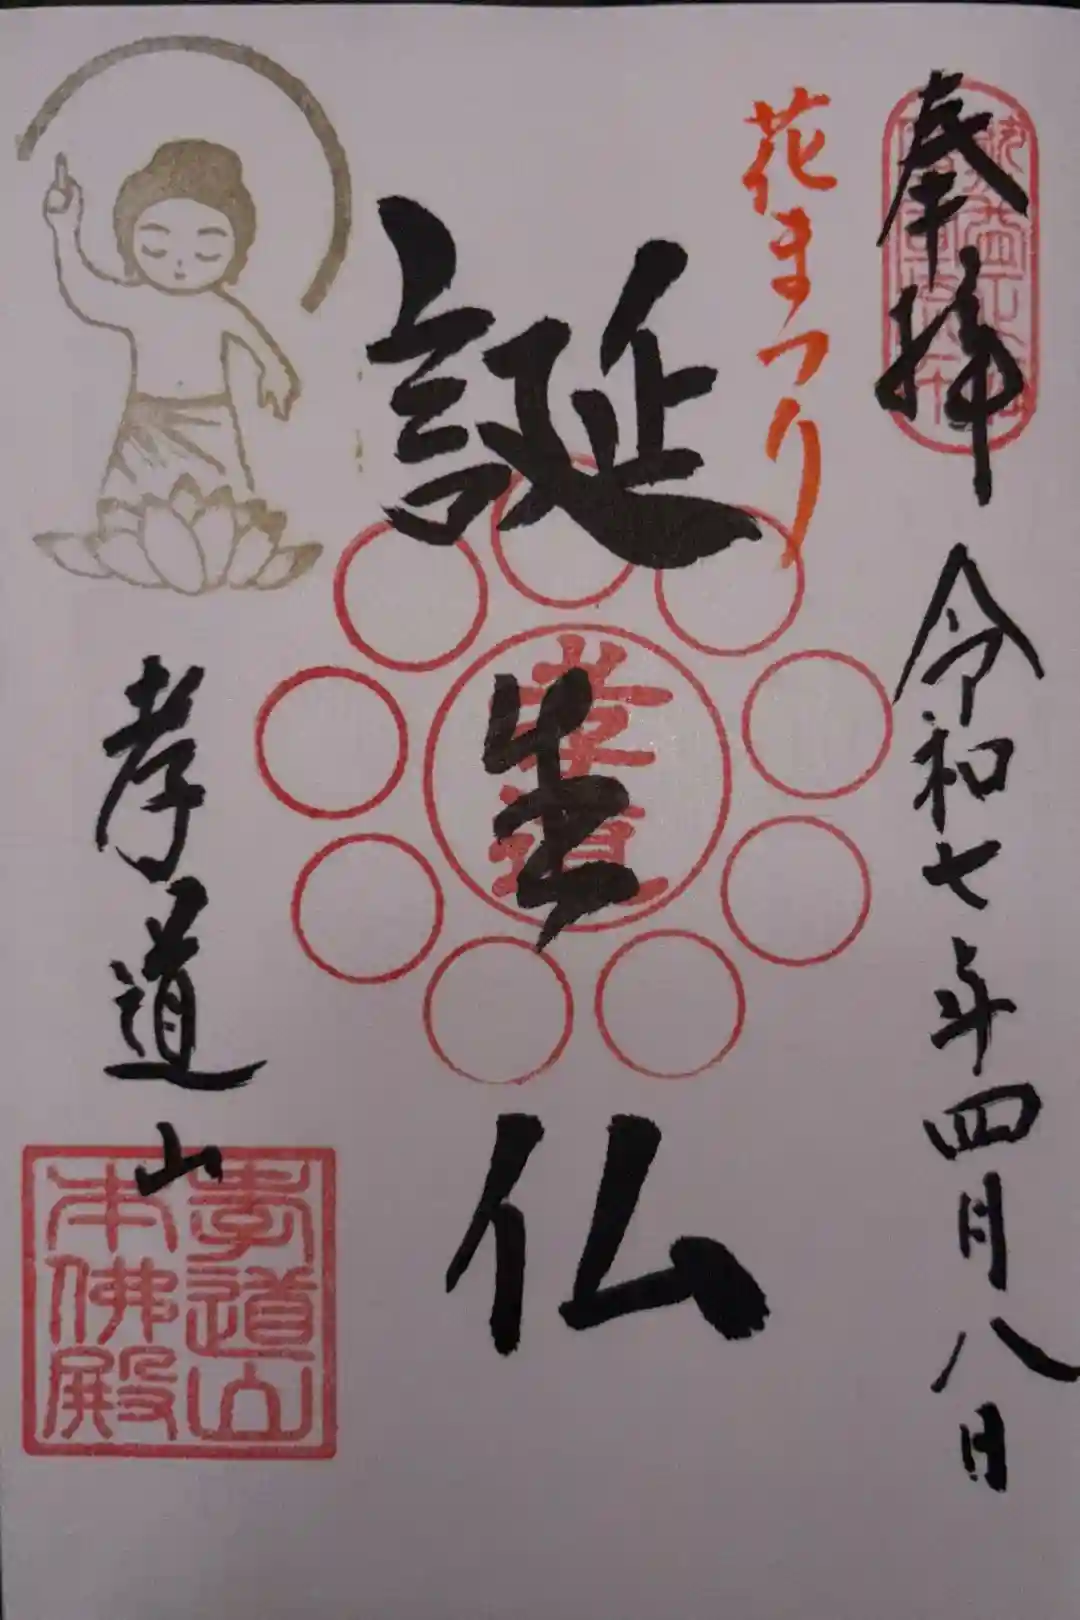 奉拝
令和七年四月八日
花まつり
誕生仏
孝道
孝道山
孝道山
本佛殿